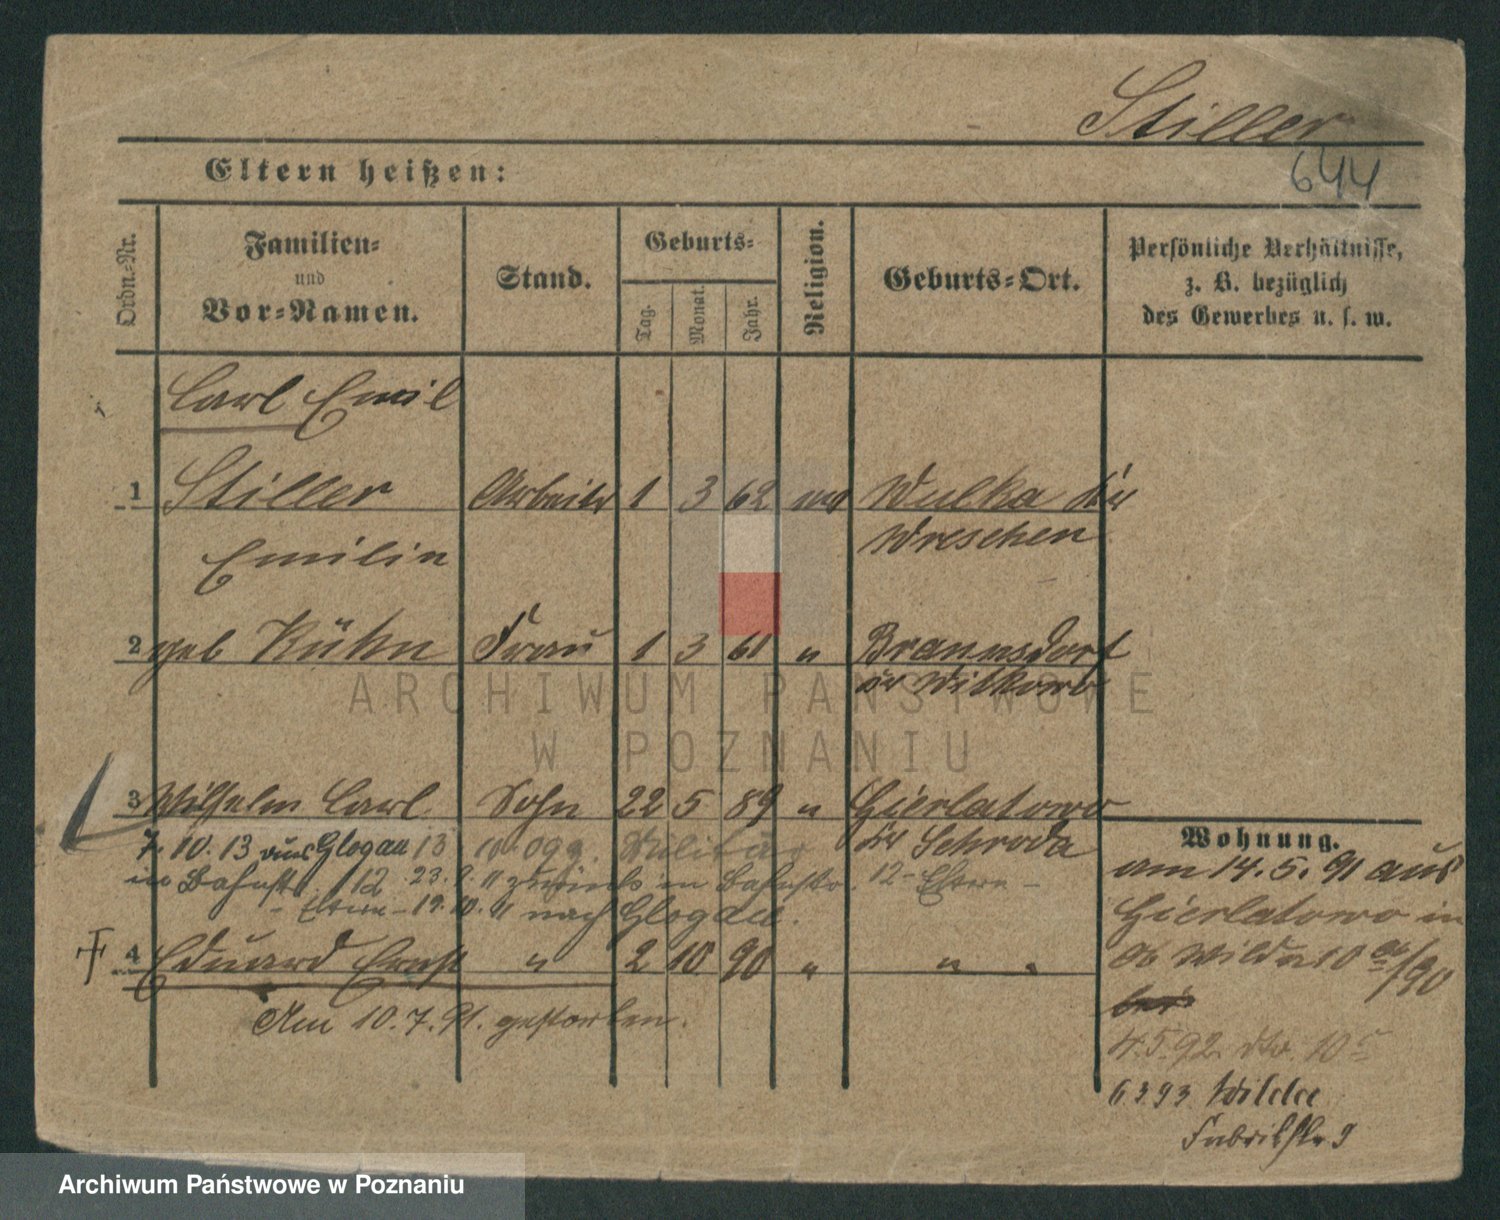 Stiller
644
Eltern heißen:
Ordn.-Nr.
Familien-
und
Vor-Namen.
Stand.
Geburts-
Tag.
Monat.
Jahr.
Religion.
Geburts-Ort.
Persönliche Verhältnisse,
z. B. bezüglich
des Gewerbes u. s. w.
Carl Emil
1 Stiller Arbeiter 1 3 62 Wulka
Wreschen
Emilin
2 geb Kühn Frau 1 3 61 " Braunsdorf
Witkowo
ARCHIWUM PAŃSTWOWE
W POZNANIU
3 Wilhelm Carl Sohn 22 5 89 " Gierlatowo
Schroda
7. 10. 13 aus Glogau 13 Militär
in Bahnstr. 12 23. 9. " zurück in Bahnstr. 12
19. 10. " nach Glogau.
4 Eduard Ernst " 2 10 90 " " "
Am 10. 7. 91. gestorben.
Wohnung.
am 14. 5. 91 aus
Gierlatowo in
Ob Wilda 10 /90
bei
4. 5. 92 10
6 3 93 Wilda
Fabrikstr 9
Archiwum Państwowe w Poznaniu